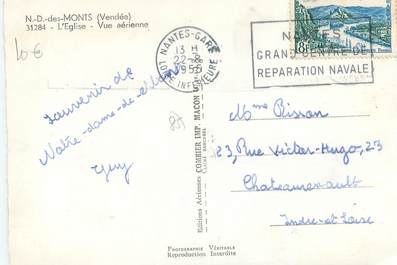 N.-D.-des-MONTS (Vendée)
31284 - L'Eglise - Vue aérienne
10€
NANTES-GARE
13 H
22-8
1955
LOIRE INFERIEURE
NANTES
GRAND CENTRE DE
REPARATION NAVALE
8F
Souvenir de
Notre-Dame-de-Monts
Guy
85
Editions Aériennes COMBIER IMP. MACON
Mme Pisson
23, Rue Victor-Hugo, 23
Chateaurenault
Indre-et-Loire
PHOTOGRAPHIE VÉRITABLE
Reproduction Interdite